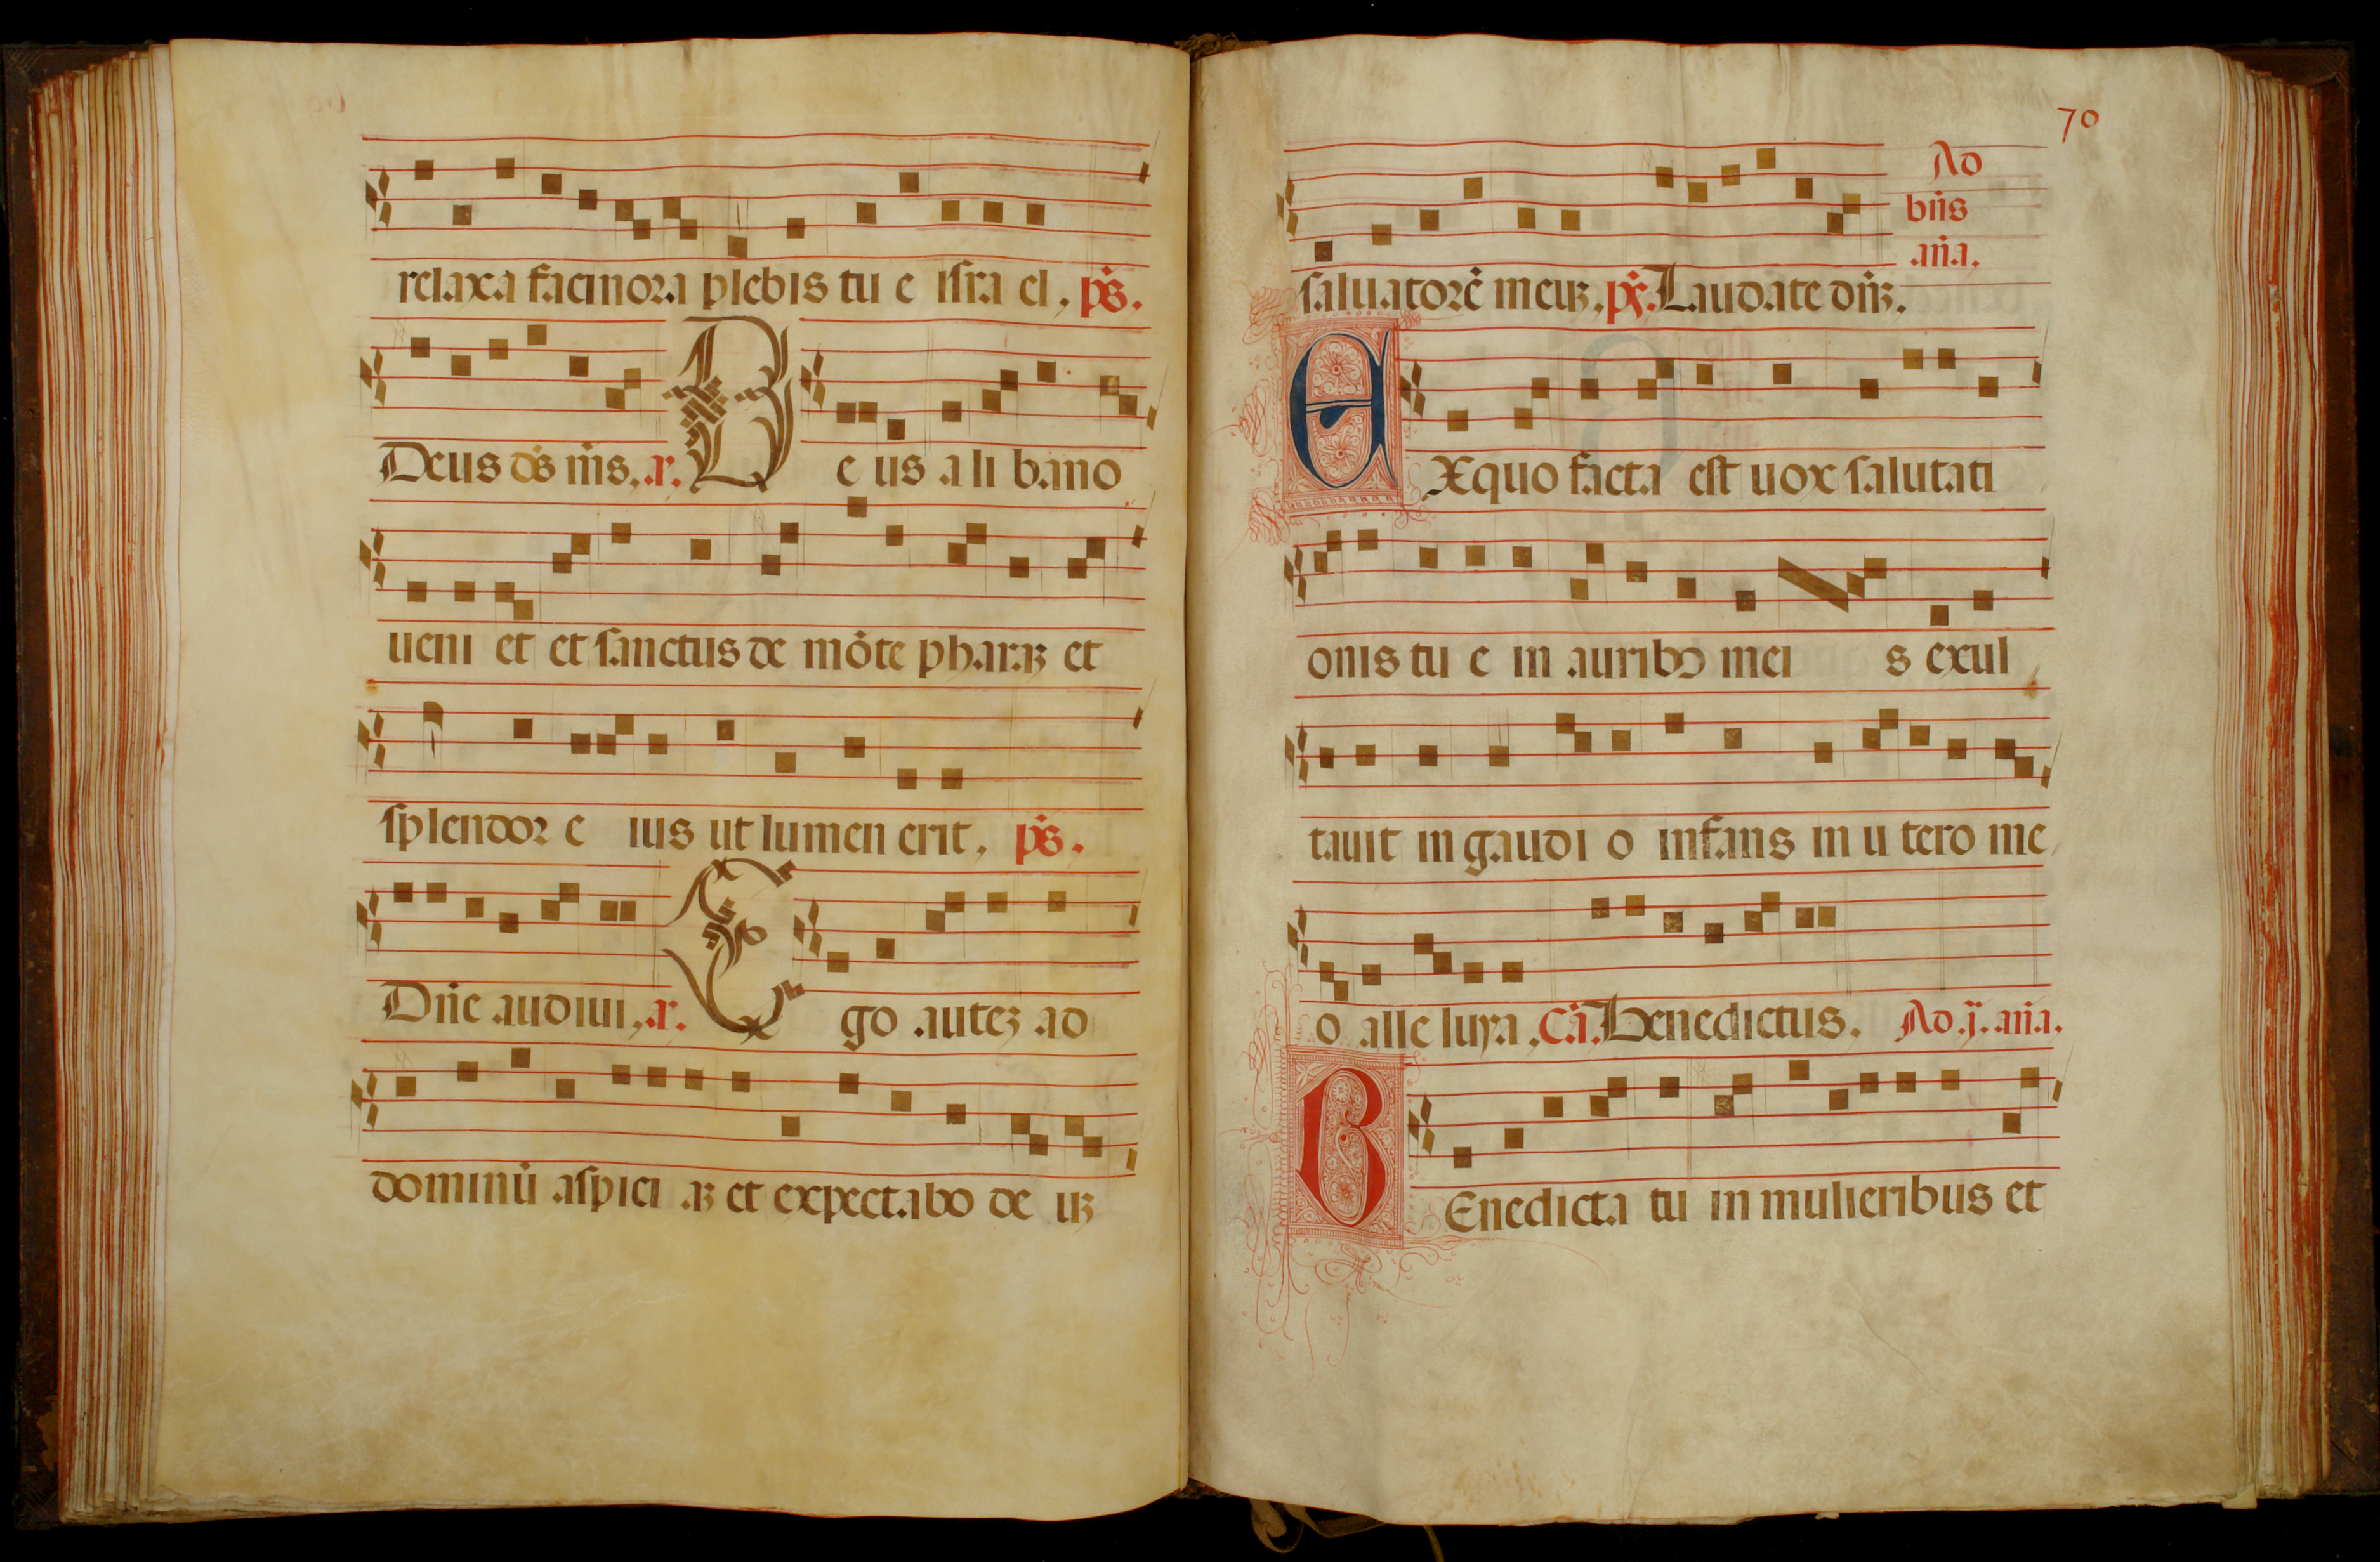 relaxa facinora plebis tu e isra el, ps.
Deus ds ms, a. D e us a li bano
ueni et et sanctus de mōte pharaȝ et
splendor e ius ut lumen erit, ps.
Dn̄e audiui, a. E go auteȝ ad
dominū aspici aȝ et expectabo de uȝ
70
saluatorē meuȝ. ps. Laudate dn̄ȝ. Ad bn̄s an̄a.
E Xquo facta est uox salutati
onis tu e in auribꝰ mei s exul
tauit in gaudi o infans in u tero me
o alle luya, Cā. Benedictus. Ad .j. an̄a.
B Enedicta tu in mulieribus et